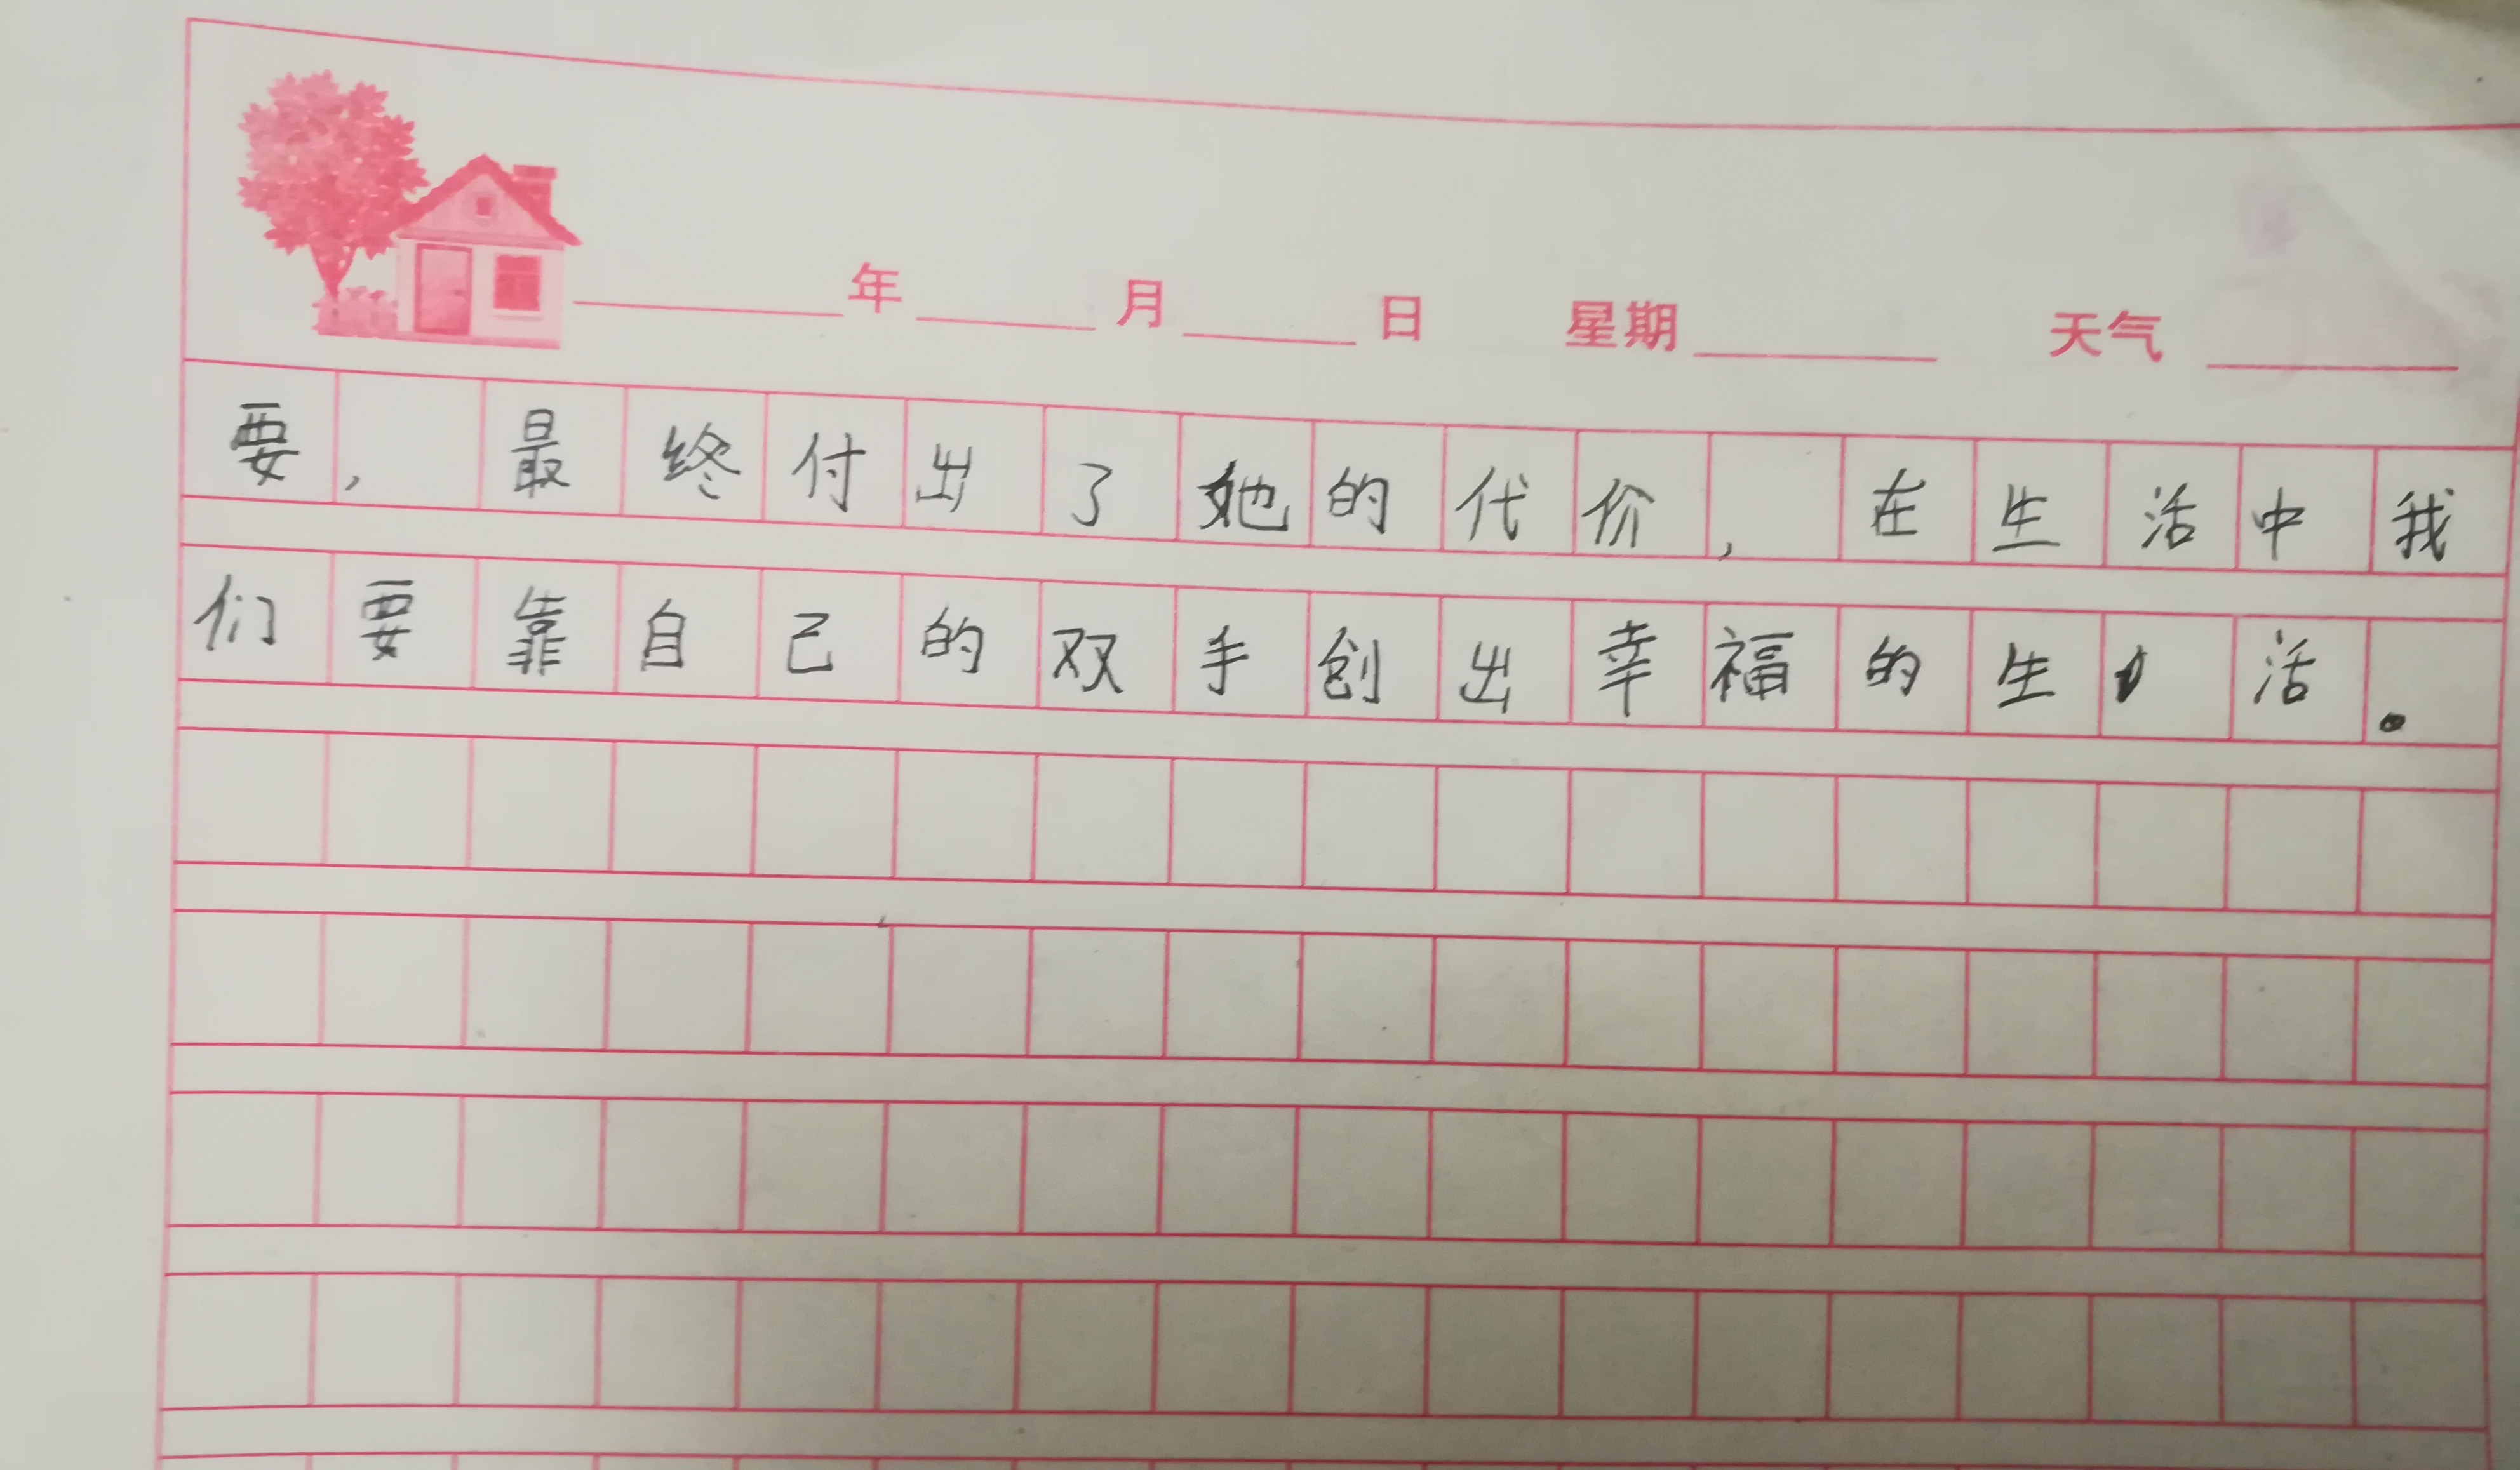 年 月 日 星期 天气
要，最终付出了她的代价，在生活中我
们要靠自己的双手创出幸福的生活。